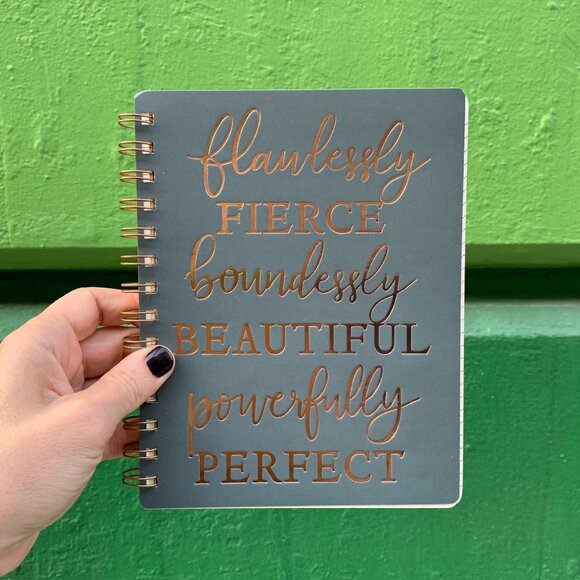 flawlessly
FIERCE
boundessly
BEAUTIFUL
powerfully
PERFECT